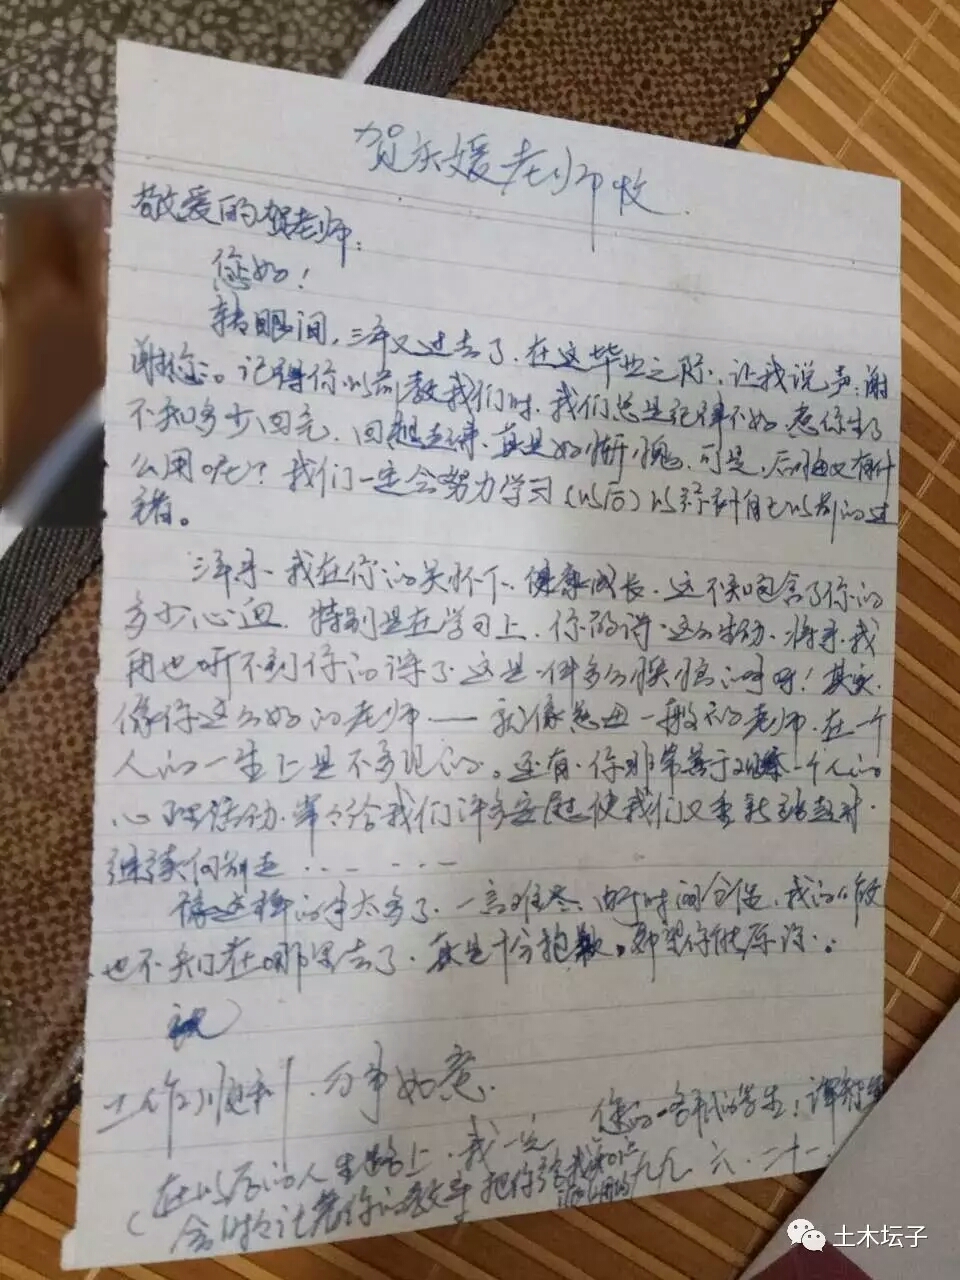 贺乐媛老师收
敬爱的贺老师:
您好!
转眼间,三年又过去了.在这毕业之际,让我说声:谢
谢您。记得你以前教我们时,我们总是纪律不好,惹你生了
不知多少回气.回想起来,真是好惭愧.可是,后悔又有什
么用呢?我们一定会努力学习(以后)以弥补自己以前的过
错。
三年来,我在你的关怀下,健康成长.这不知包含了你的
多少心血.特别是在学习上,你的课,这么生动.将来,我
再也听不到你的课了.这是一件多么的呀!其实,
像你这么好的老师——就像慈母一般的老师.在一个
人的一生上是不多见的。还有,你非常善于观察一个人的
心理活动.常々给我们许多安慰使我们又重新站起来.
继续向前走……
像这样的事太多了.一言难尽.由于时间仓促,我的
也不知在哪里去了.真是十分抱歉。希望你能原谅.
祝
工作顺利.万事如意.
您的一名的学生:谭
九九.六.二十一.
(在以后的人生路上,我一定
会时々记着你的教导,把你给我知识
土木坛子